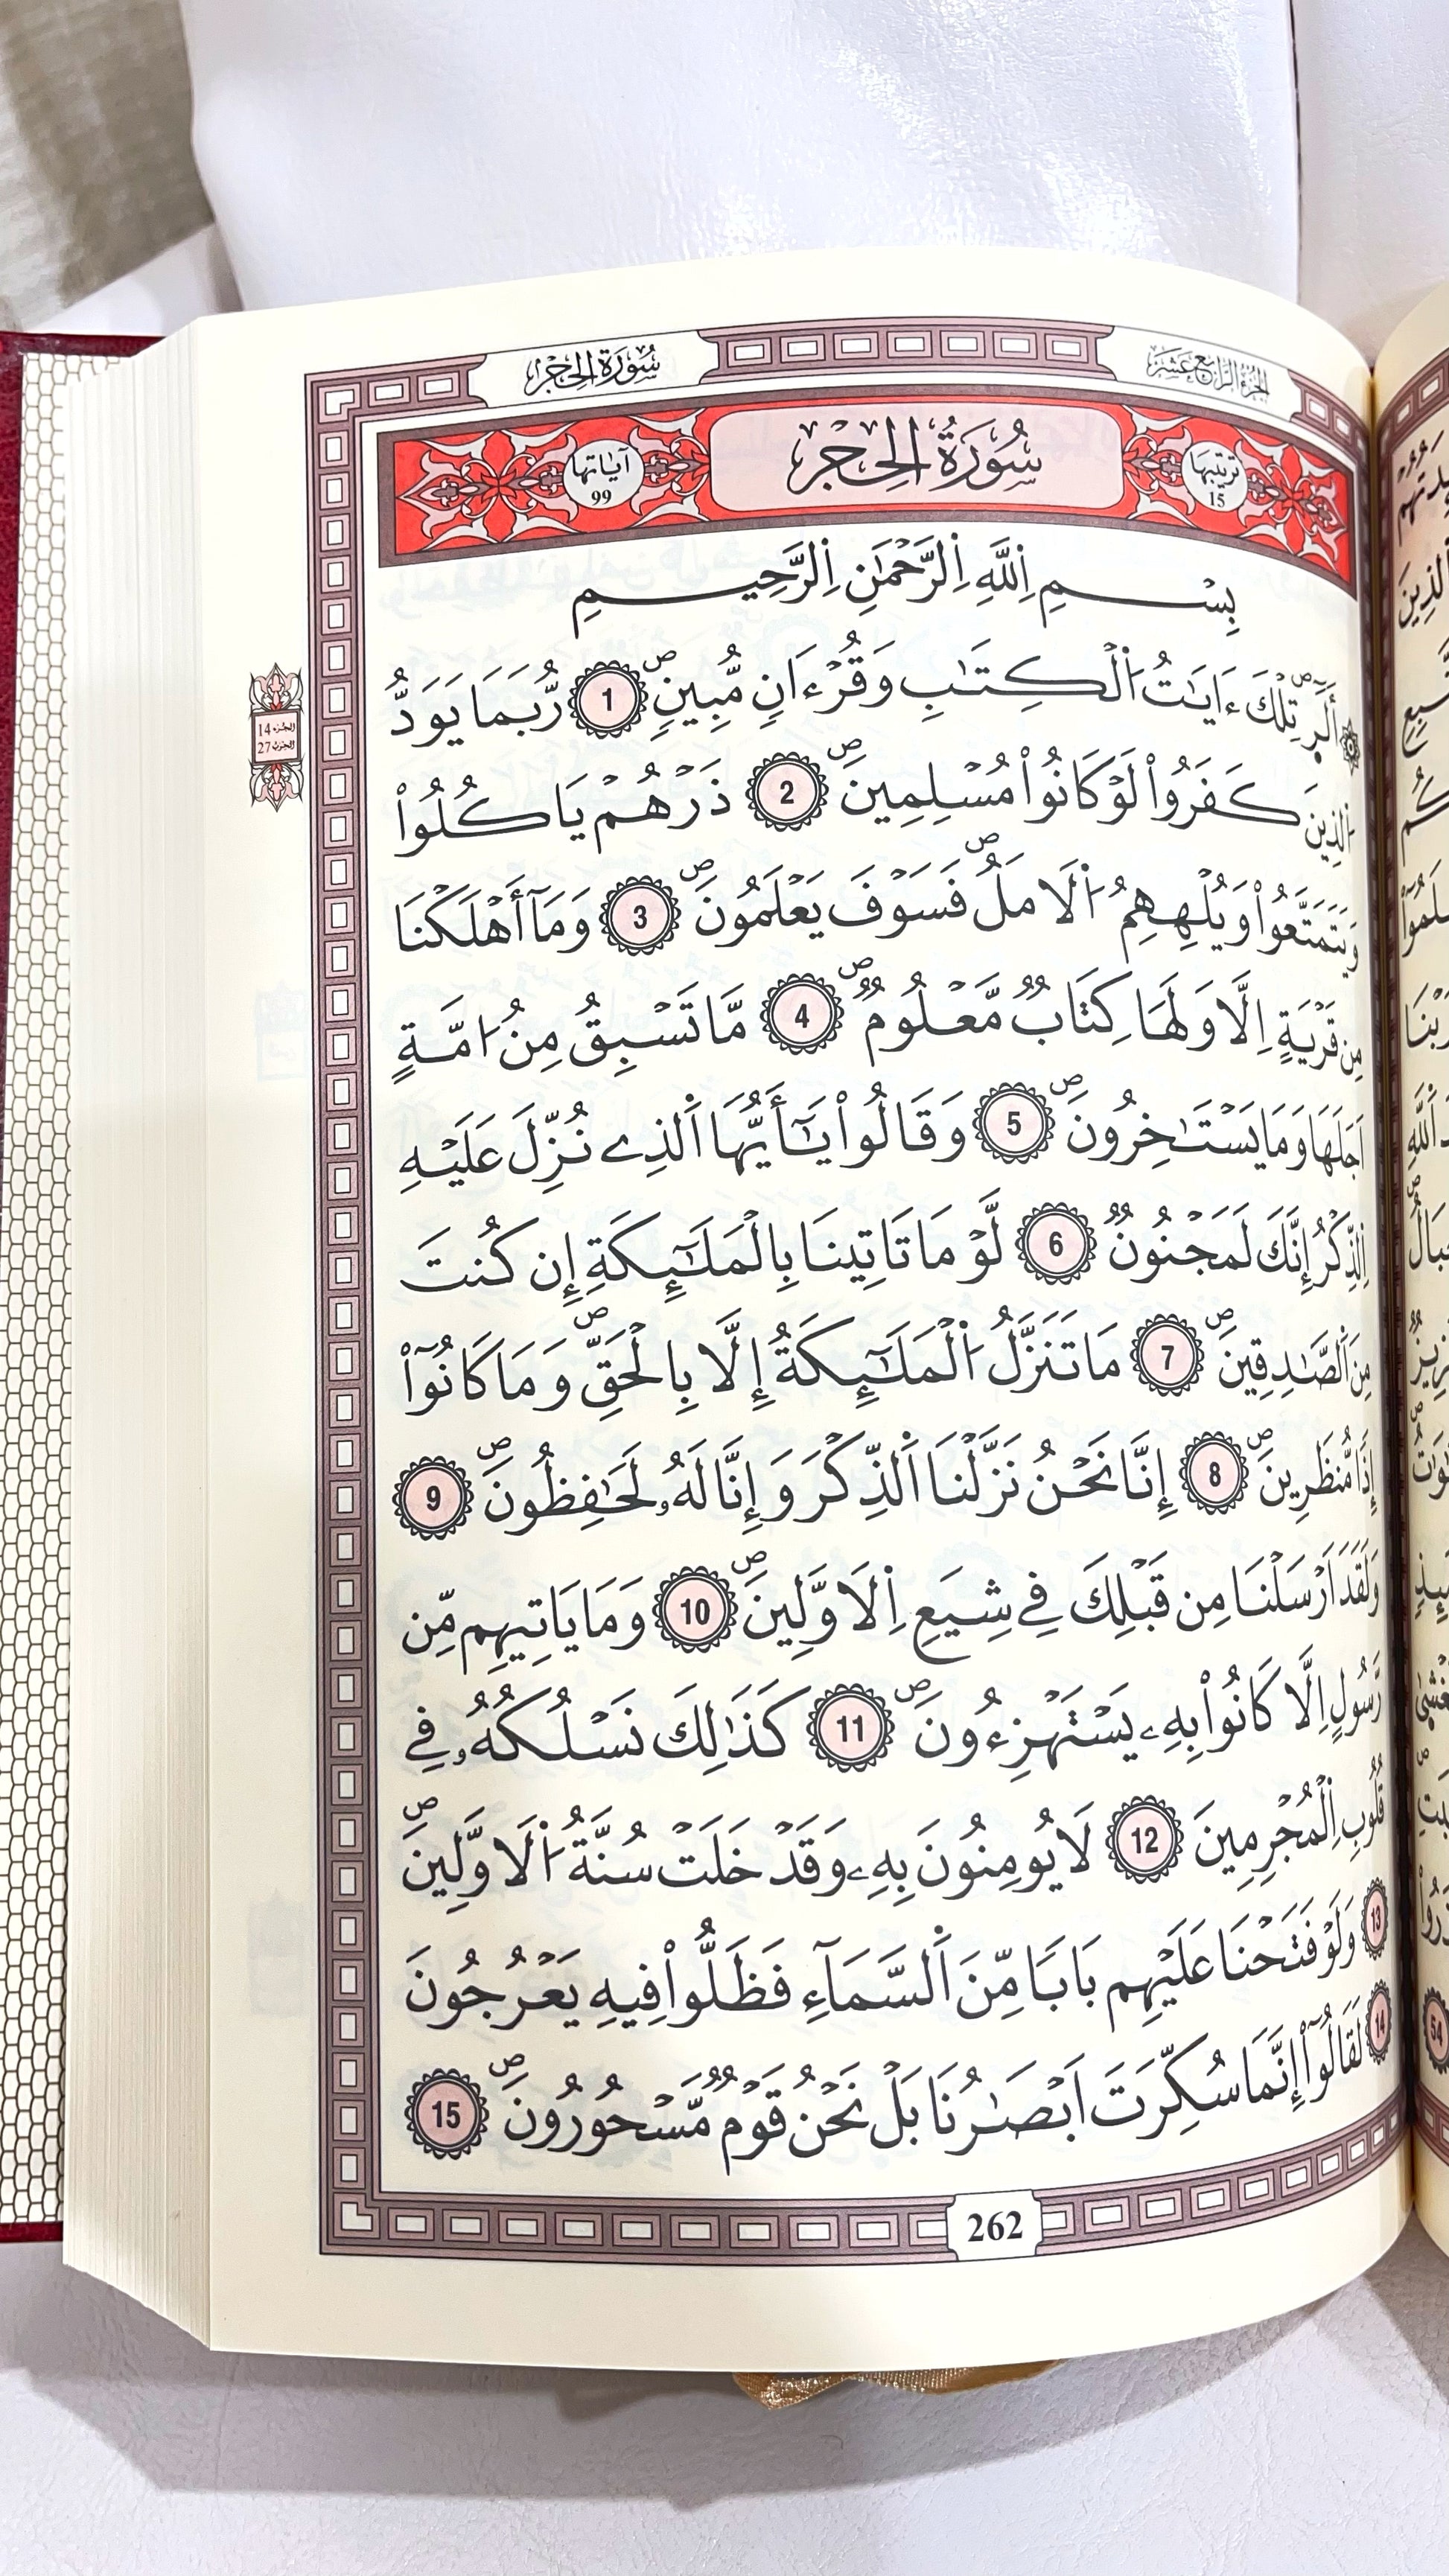 الجزء الرابع عشر
سورة الحجر
ترتيبها 15
سُورَةُ الحِجْرِ
آياتها 99
بِسْمِ اِللَّهِ اِلرَّحْمَٰنِ اِلرَّحِيمِ
أَلَٓرۖ تِلْكَ ءَايَٰتُ اُلْكِتَٰبِ وَقُرْءَانٖ مُّبِينٖۖ 1 رُّبَمَا يَوَدُّ
اُلذِينَ كَفَرُواْ لَوْ كَانُواْ مُسْلِمِينَۖ 2 ذَرْهُمْ يَاكُلُواْ
وَيَتَمَتَّعُواْ وَيُلْهِهِمُ اُلَامَلُۖ فَسَوْفَ يَعْلَمُونَۖ 3 وَمَآ أَهْلَكْنَا
مِن قَرْيَةٍ اِلَّا وَلَهَا كِتَابٞ مَّعْلُومٞۖ 4 مَّا تَسْبِقُ مِنُ ا۟مَّةٍ
اَجَلَهَا وَمَا يَسْتَٰخِرُونَۖ 5 وَقَالُواْ يَٰٓأَيُّهَا اَلذِے نُزِّلَ عَلَيْهِ
اِلذِّكْرُ إِنَّكَ لَمَجْنُونٞ 6 لَّوْ مَا تَاتِينَا بِالْمَلَٰٓئِكَةِ إِن كُنتَ
مِنَ اَلصَّٰدِقِينَۖ 7 مَا تَنَزَّلُ اُلْمَلَٰٓئِكَةُ إِلَّا بِالْحَقِّۖ وَمَا كَانُوٓاْ
إِذاٗ مُّنظَرِينَۖ 8 إِنَّا نَحْنُ نَزَّلْنَا اَلذِّكْرَ وَإِنَّا لَهُۥ لَحَٰفِظُونَۖ 9
وَلَقَدَ اَرْسَلْنَا مِن قَبْلِكَ فِے شِيَعِ اِلَاوَّلِينَۖ 10 وَمَا يَاتِيهِم مِّن
رَّسُولٍ اِلَّا كَانُواْ بِهِۦ يَسْتَهْزِءُونَۖ 11 كَذَٰلِكَ نَسْلُكُهُۥ فِے
قُلُوبِ اِلْمُجْرِمِينَ 12 لَا يُومِنُونَ بِهِۦ وَقَدْ خَلَتْ سُنَّةُ اُلَاوَّلِينَۖ
13 وَلَوْ فَتَحْنَا عَلَيْهِم بَاباٗ مِّنَ اَلسَّمَآءِ فَظَلُّواْ فِيهِ يَعْرُجُونَ
14 لَقَالُوٓاْ إِنَّمَا سُكِّرَتَ اَبْصَٰرُنَا بَلْ نَحْنُ قَوْمٞ مَّسْحُورُونَۖ 15
الجزء 14
الحزب 27
262
54